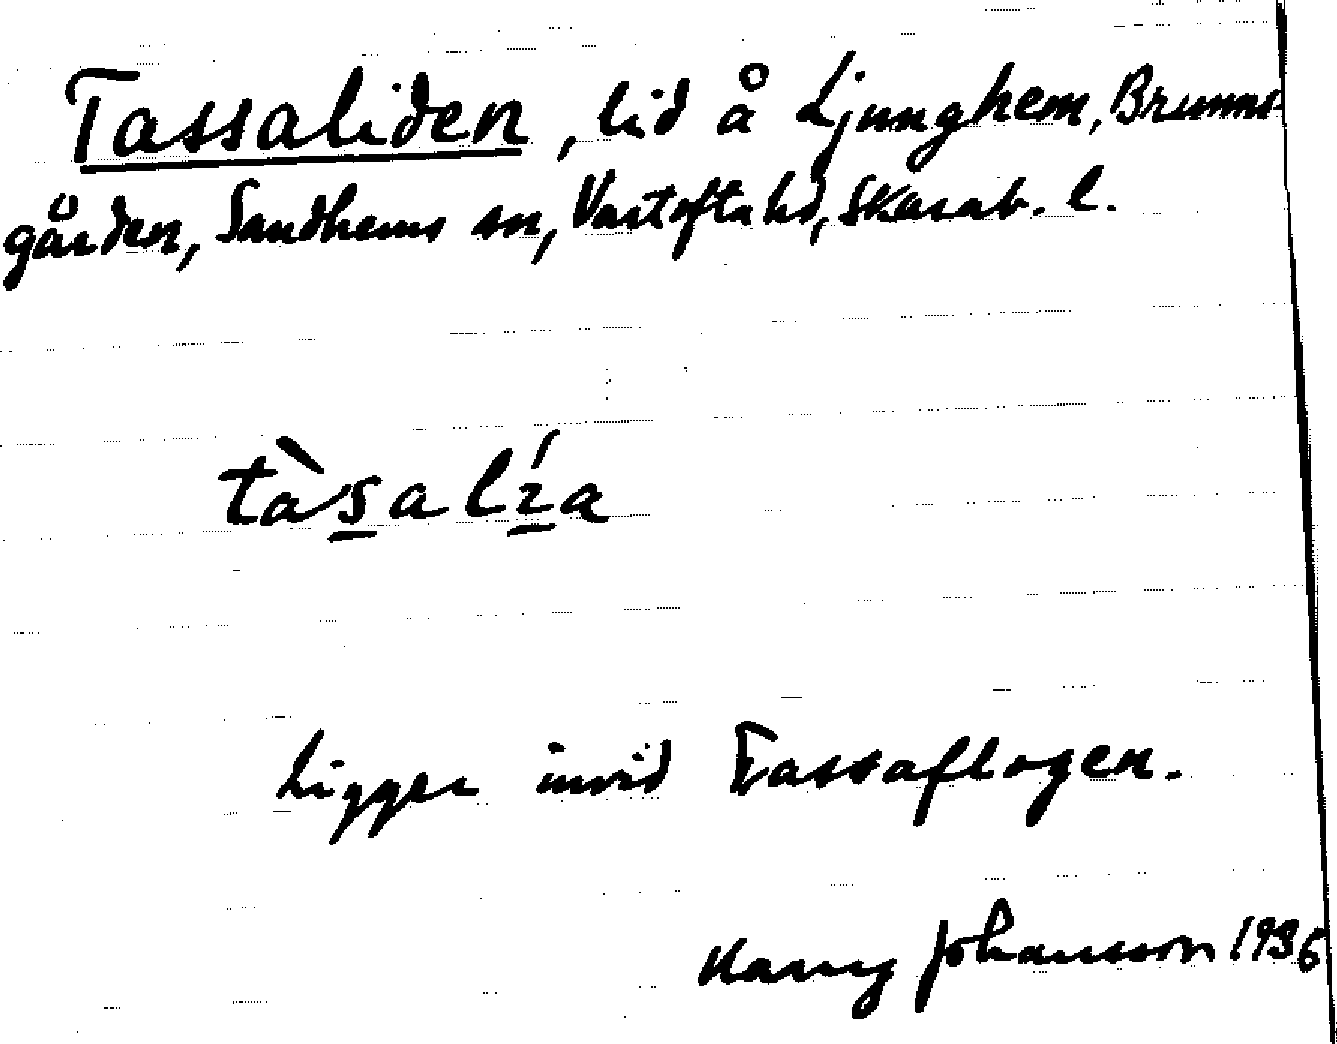 Tassaliden, lid å Ljunghem, Brunns-
gården, Sandhems sn, Vartofta hd, Skarab. l.
tàs̲alí̲a
Ligger invid Tassaflogen.
Harry Johansson 1936